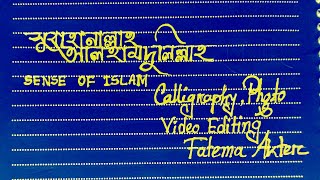 সুবহানাল্লাহ
আলহামদুলিল্লাহ
SENSE OF ISLAM
Calligraphy, Photo
Video Editing
Fatema Akter